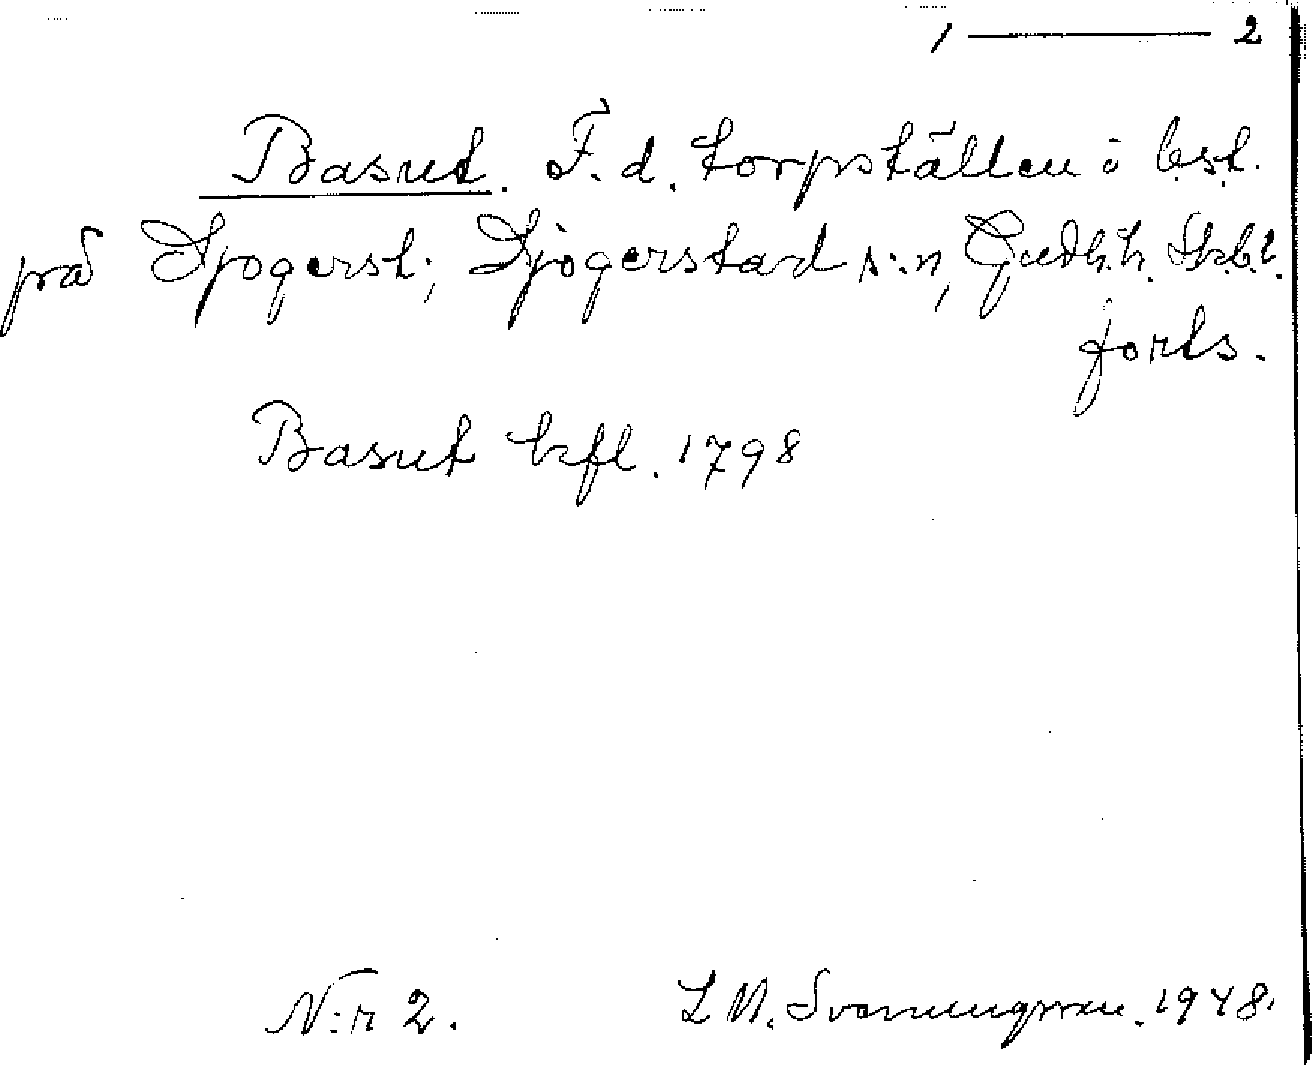 1 — 2
Basut. F. d. torpställen i bst.
på Sjogerst; Sjogerstad s:n, Gudh.h. Skbl.
forts.
Basut krfl. 1798
N:r 2. L M. Svanungman. 1948.